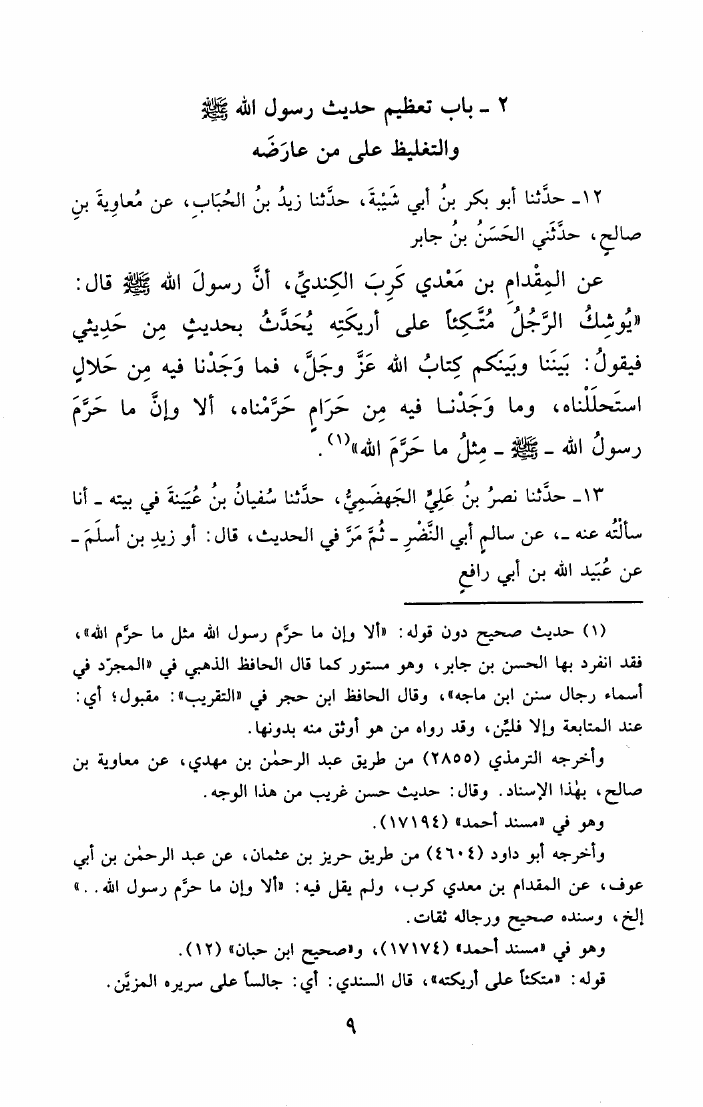 ٢ ـ باب تعظيم حديث رسول الله ﷺ
والتغليظ على من عارَضَه
١٢ـ حدَّثنا أبو بكر بنُ أبي شَيْبَةَ، حدَّثنا زيدُ بنُ الحُبَابِ، عن مُعاوِيةَ بنِ
صالحٍ، حدَّثَني الحَسَنُ بنُ جابر
عن المِقْدامِ بن مَعْدي كَرِبَ الكِنديِّ، أنَّ رسولَ الله ﷺ قال:
«يُوشِكُ الرَّجُلُ مُتَّكِئاً على أريكَتِه يُحَدَّثُ بحديثٍ مِن حَدِيثي
فيقولُ: بَينَنا وبَينَكم كِتابُ الله عَزَّ وجَلَّ، فما وَجَدْنا فيه مِن حَلالٍ
استَحلَلْناه، وما وَجَدْنـا فيه مِن حَرَامٍ حَرَّمْناه، ألا وإنَّ ما حَرَّمَ
رسولُ الله ـ ﷺ ـ مِثلُ ما حَرَّمَ الله»(١).
١٣ـ حدَّثنا نصرُ بنُ عَلِيٍّ الجَهضَمِيُّ، حدَّثنا سُفيانُ بنُ عُيَينةَ في بيته ـ أنا
سألتُه عنه ـ، عن سالمٍ أبي النَّضْرِ ـ ثُمَّ مَرَّ في الحديث، قال: أو زيدِ بن أسلَمَ ـ
عن عُبَيد الله بن أبي رافعٍ
(١) حديث صحيح دون قوله: «ألا وإن ما حرَّم رسول الله مثل ما حرَّم الله»،
فقد انفرد بها الحسن بن جابر، وهو مستور كما قال الحافظ الذهبي في «المجرَّد في
أسماء رجال سنن ابن ماجه»، وقال الحافظ ابن حجر في «التقريب»: مقبول؛ أي:
عند المتابعة وإلا فليِّن، وقد رواه من هو أوثق منه بدونها.
وأخرجه الترمذي (٢٨٥٥) من طريق عبد الرحمٰن بن مهدي، عن معاوية بن
صالح، بهٰذا الإسناد. وقال: حديث حسن غريب من هذا الوجه.
وهو في «مسند أحمد» (١٧١٩٤).
وأخرجه أبو داود (٤٦٠٤) من طريق حريز بن عثمان، عن عبد الرحمٰن بن أبي
عوف، عن المقدام بن معدي كرب، ولم يقل فيه: «ألا وإن ما حرَّم رسول الله..»
إلخ، وسنده صحيح ورجاله ثقات.
وهو في «مسند أحمد» (١٧١٧٤)، و«صحيح ابن حبان» (١٢).
قوله: «متكئاً على أريكته»، قال السندي: أي: جالساً على سريره المزيَّن.
٩